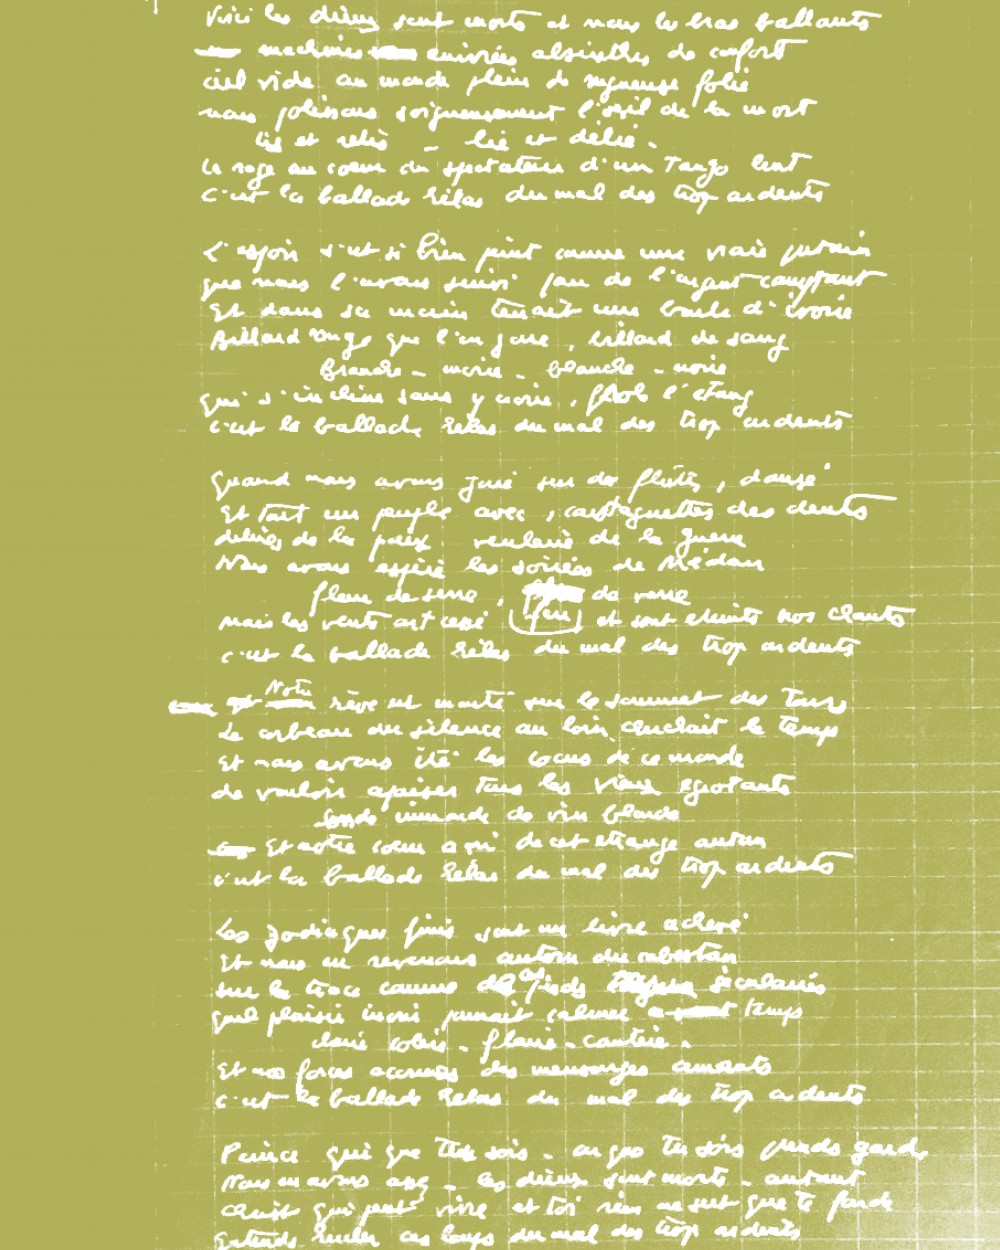 Voici les dieux sont morts et nous les bras ballants
machines enivrées absinthes de confort
ciel vide au monde plein de rugueuse folie
nous polissons soigneusement l'orgueil de la mort
lis et relis - lie et délie.
La rage au coeur du spectateur d'un Tango lent
c'est la ballade hélas du mal des trop ardents
L'espoir s'est si bien peint comme une vraie putain
que nous l'avons suivi pour de l'argent comptant
Et dans sa main tenait une boule d'ivoire
Billard rouge que l'on joue, billard de sang
blanche - noire - blanche - noire
qui s'incline sans y croire, l'étang
c'est la ballade hélas du mal des trop ardents
Quand nous avons joué sur des flûtes, dansé
Et tout un peuple avec, castagnettes des dents
délires de la paix de la guerre
Nous avons espéré les soirées de Médan
fleur de serre, de verre
mais les vents ont cessé et sont éteints nos chants
c'est la ballade hélas du mal des trop ardents
Notre rêve est monté sur le sommet des Tours
Le corbeau du silence au loin le temps
Et nous avons été les cocus de ce monde
de vouloir apaiser tous les vieux egrotants
immonde de vin blonde
Et notre coeur a ri de cet étrange autan
c'est la ballade hélas du mal des trop ardents
Les zodiaques finis sont un livre achevé
Et nous en revenons autour du cabestan
sur la trace comme les pieds séculaires
quel plaisir inouï pourrait calmer temps
claire - colère - flaire -
Et nos forces accrues des mensonges amants
c'est la ballade hélas du mal des trop ardents
Prince qui que tu sois - ou que tu sois prends garde
Nous en avons assez - les dieux sont morts - autant
qui peut vivre et toi rien ne sert que te farde
Entends hurler ces loups du mal des trop ardents